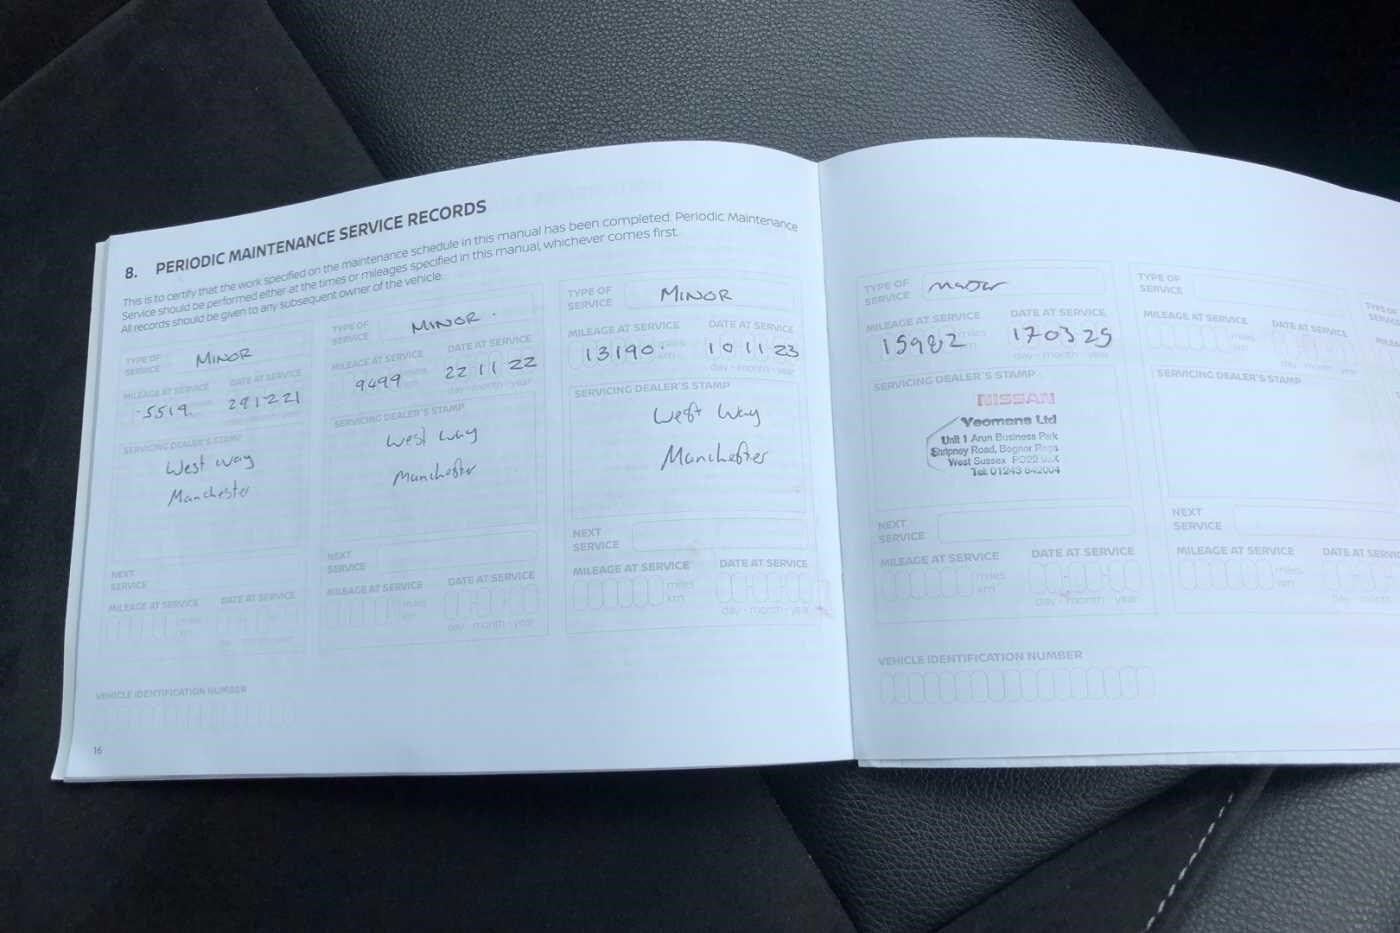 8. PERIODIC MAINTENANCE SERVICE RECORDS
This is to certify that the work specified on the maintenance schedule in this manual has been completed. Periodic Maintenance
Service should be performed either at the times or mileages specified in this manual, whichever comes first.
All records should be given to any subsequent owner of the vehicle.
TYPE OF SERVICE MINOR
MILEAGE AT SERVICE DATE AT SERVICE
5519 291221
SERVICING DEALER'S STAMP
West way
Manchester
NEXT SERVICE
MILEAGE AT SERVICE DATE AT SERVICE
VEHICLE IDENTIFICATION NUMBER
16
TYPE OF SERVICE MINOR.
MILEAGE AT SERVICE DATE AT SERVICE
9499 22 11 22
day - month - year
SERVICING DEALER'S STAMP
West way
Manchester
NEXT SERVICE
MILEAGE AT SERVICE DATE AT SERVICE
miles
km
day - month - year
TYPE OF SERVICE MINOR
MILEAGE AT SERVICE DATE AT SERVICE
13190. 10 11 23
km
day - month - year
SERVICING DEALER'S STAMP
West Way
Manchester
NEXT SERVICE
MILEAGE AT SERVICE DATE AT SERVICE
miles
km
day - month - year
TYPE OF SERVICE major
MILEAGE AT SERVICE DATE AT SERVICE
15982 miles 170325
km
day - month - year
SERVICING DEALER'S STAMP
NISSAN
Yeomans Ltd
Unit 1 Arun Business Park
Shripney Road, Bognor Regis
West Sussex PO22
Tel: 01243
NEXT SERVICE
MILEAGE AT SERVICE DATE AT SERVICE
miles
km
day - month - year
VEHICLE IDENTIFICATION NUMBER
TYPE OF SERVICE
MILEAGE AT SERVICE DATE AT SERVICE
miles
km
day - month - year
SERVICING DEALER'S STAMP
NEXT SERVICE
MILEAGE AT SERVICE DATE AT SERVICE
miles
km
TYPE OF SERVICE